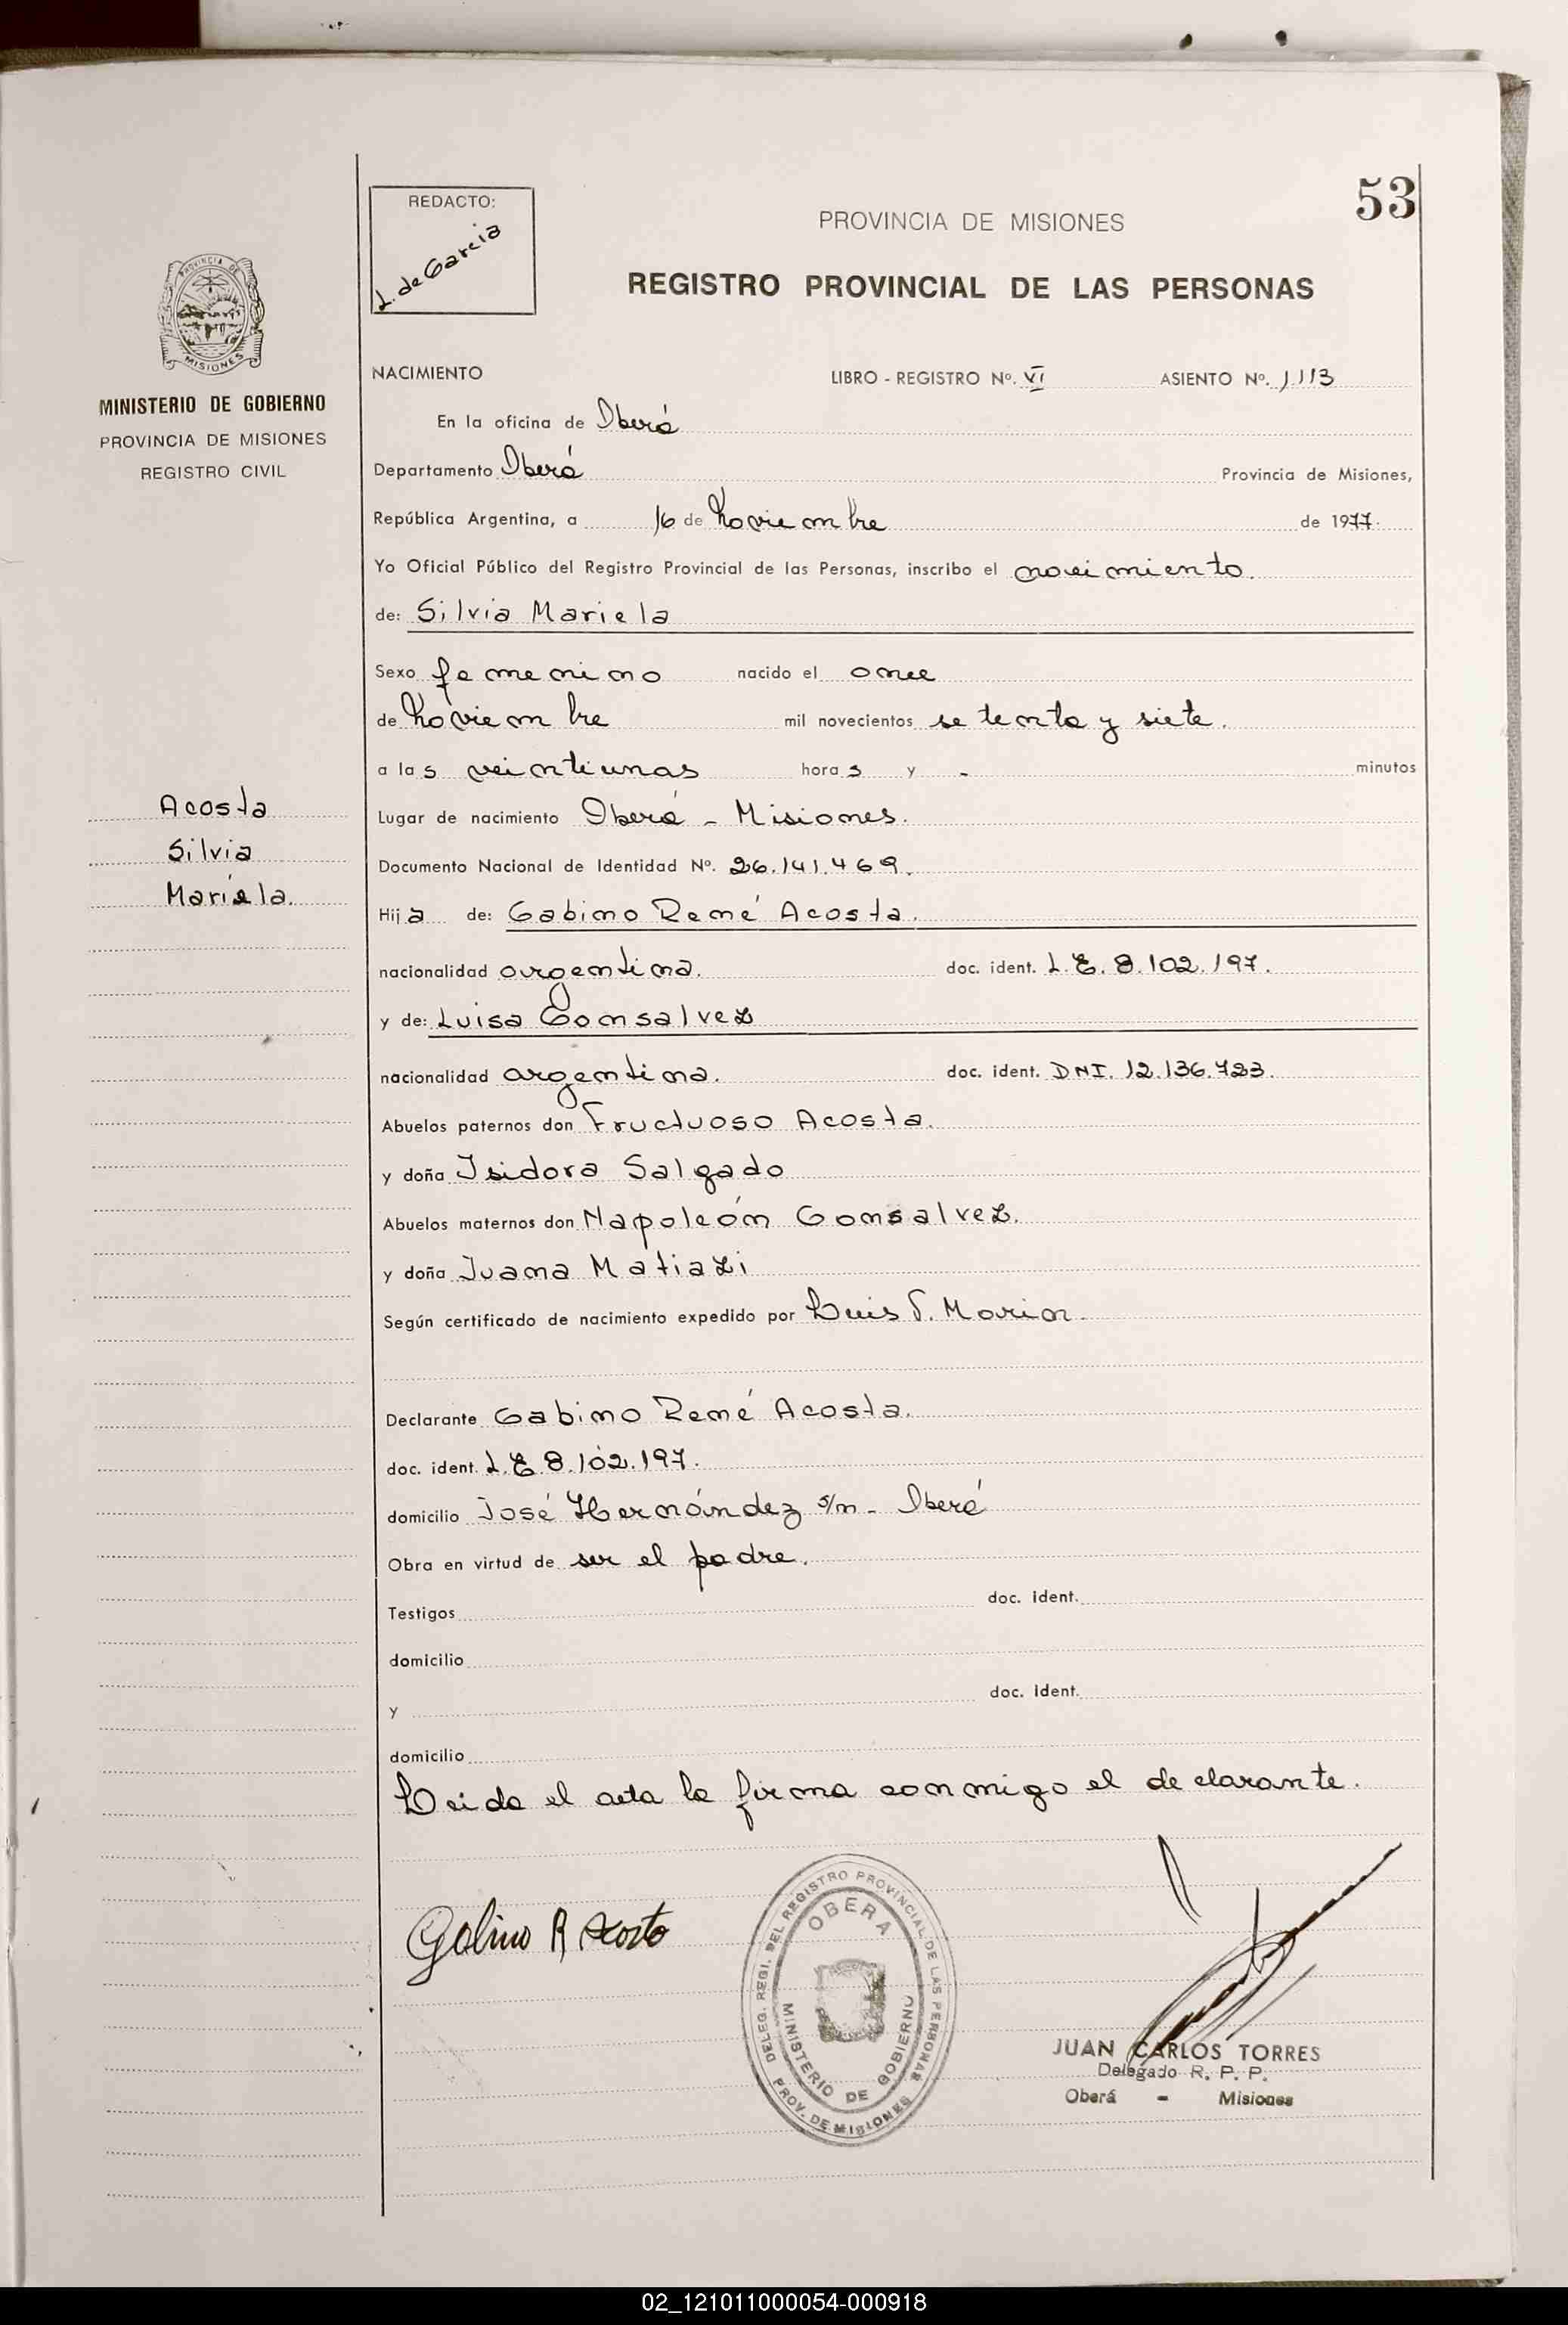 53
REDACTO:
L. de Garcia
PROVINCIA DE MISIONES
REGISTRO PROVINCIAL DE LAS PERSONAS
PROVINCIA DE
MISIONES
MINISTERIO DE GOBIERNO
PROVINCIA DE MISIONES
REGISTRO CIVIL
NACIMIENTO LIBRO - REGISTRO Nº. VI ASIENTO Nº. 1113
En la oficina de Oberá
Departamento Oberá Provincia de Misiones,
República Argentina, a 16 de Noviembre de 1977.
Yo Oficial Público del Registro Provincial de las Personas, inscribo el nacimiento.
de: Silvia Mariela
Sexo femenino nacido el once
de Noviembre mil novecientos setenta y siete.
a las veintiunas horas y - minutos
Acosta
Silvia
Mariela.
Lugar de nacimiento Oberá - Misiones.
Documento Nacional de Identidad Nº. 26.141.469.
Hija de: Gabino René Acosta.
nacionalidad argentina. doc. ident. L.E. 8.102.197.
y de: Luisa Gonsalvez
nacionalidad argentina. doc. ident. DNI. 12.136.723.
Abuelos paternos don Fructuoso Acosta.
y doña Isidora Salgado
Abuelos maternos don Napoleón Gonsalvez.
y doña Juana Matiazi
Según certificado de nacimiento expedido por Luis
Declarante Gabino René Acosta.
doc. ident. L.E 8.102.197.
domicilio José Hernández s/n - Oberá
Obra en virtud de ser el padre.
Testigos doc. ident.
domicilio
y doc. ident.
domicilio
Leida el acta la firma conmigo el declarante.
Gabino R Acosta
DELEG. REGI. DEL REGISTRO PROVINCIAL DE LAS PERSONAS
OBERA
MINISTERIO DE GOBIERNO
PROV. DE MISIONES
JUAN CARLOS TORRES
Delegado R. P. P.
Oberá - Misiones
02_121011000054-000918